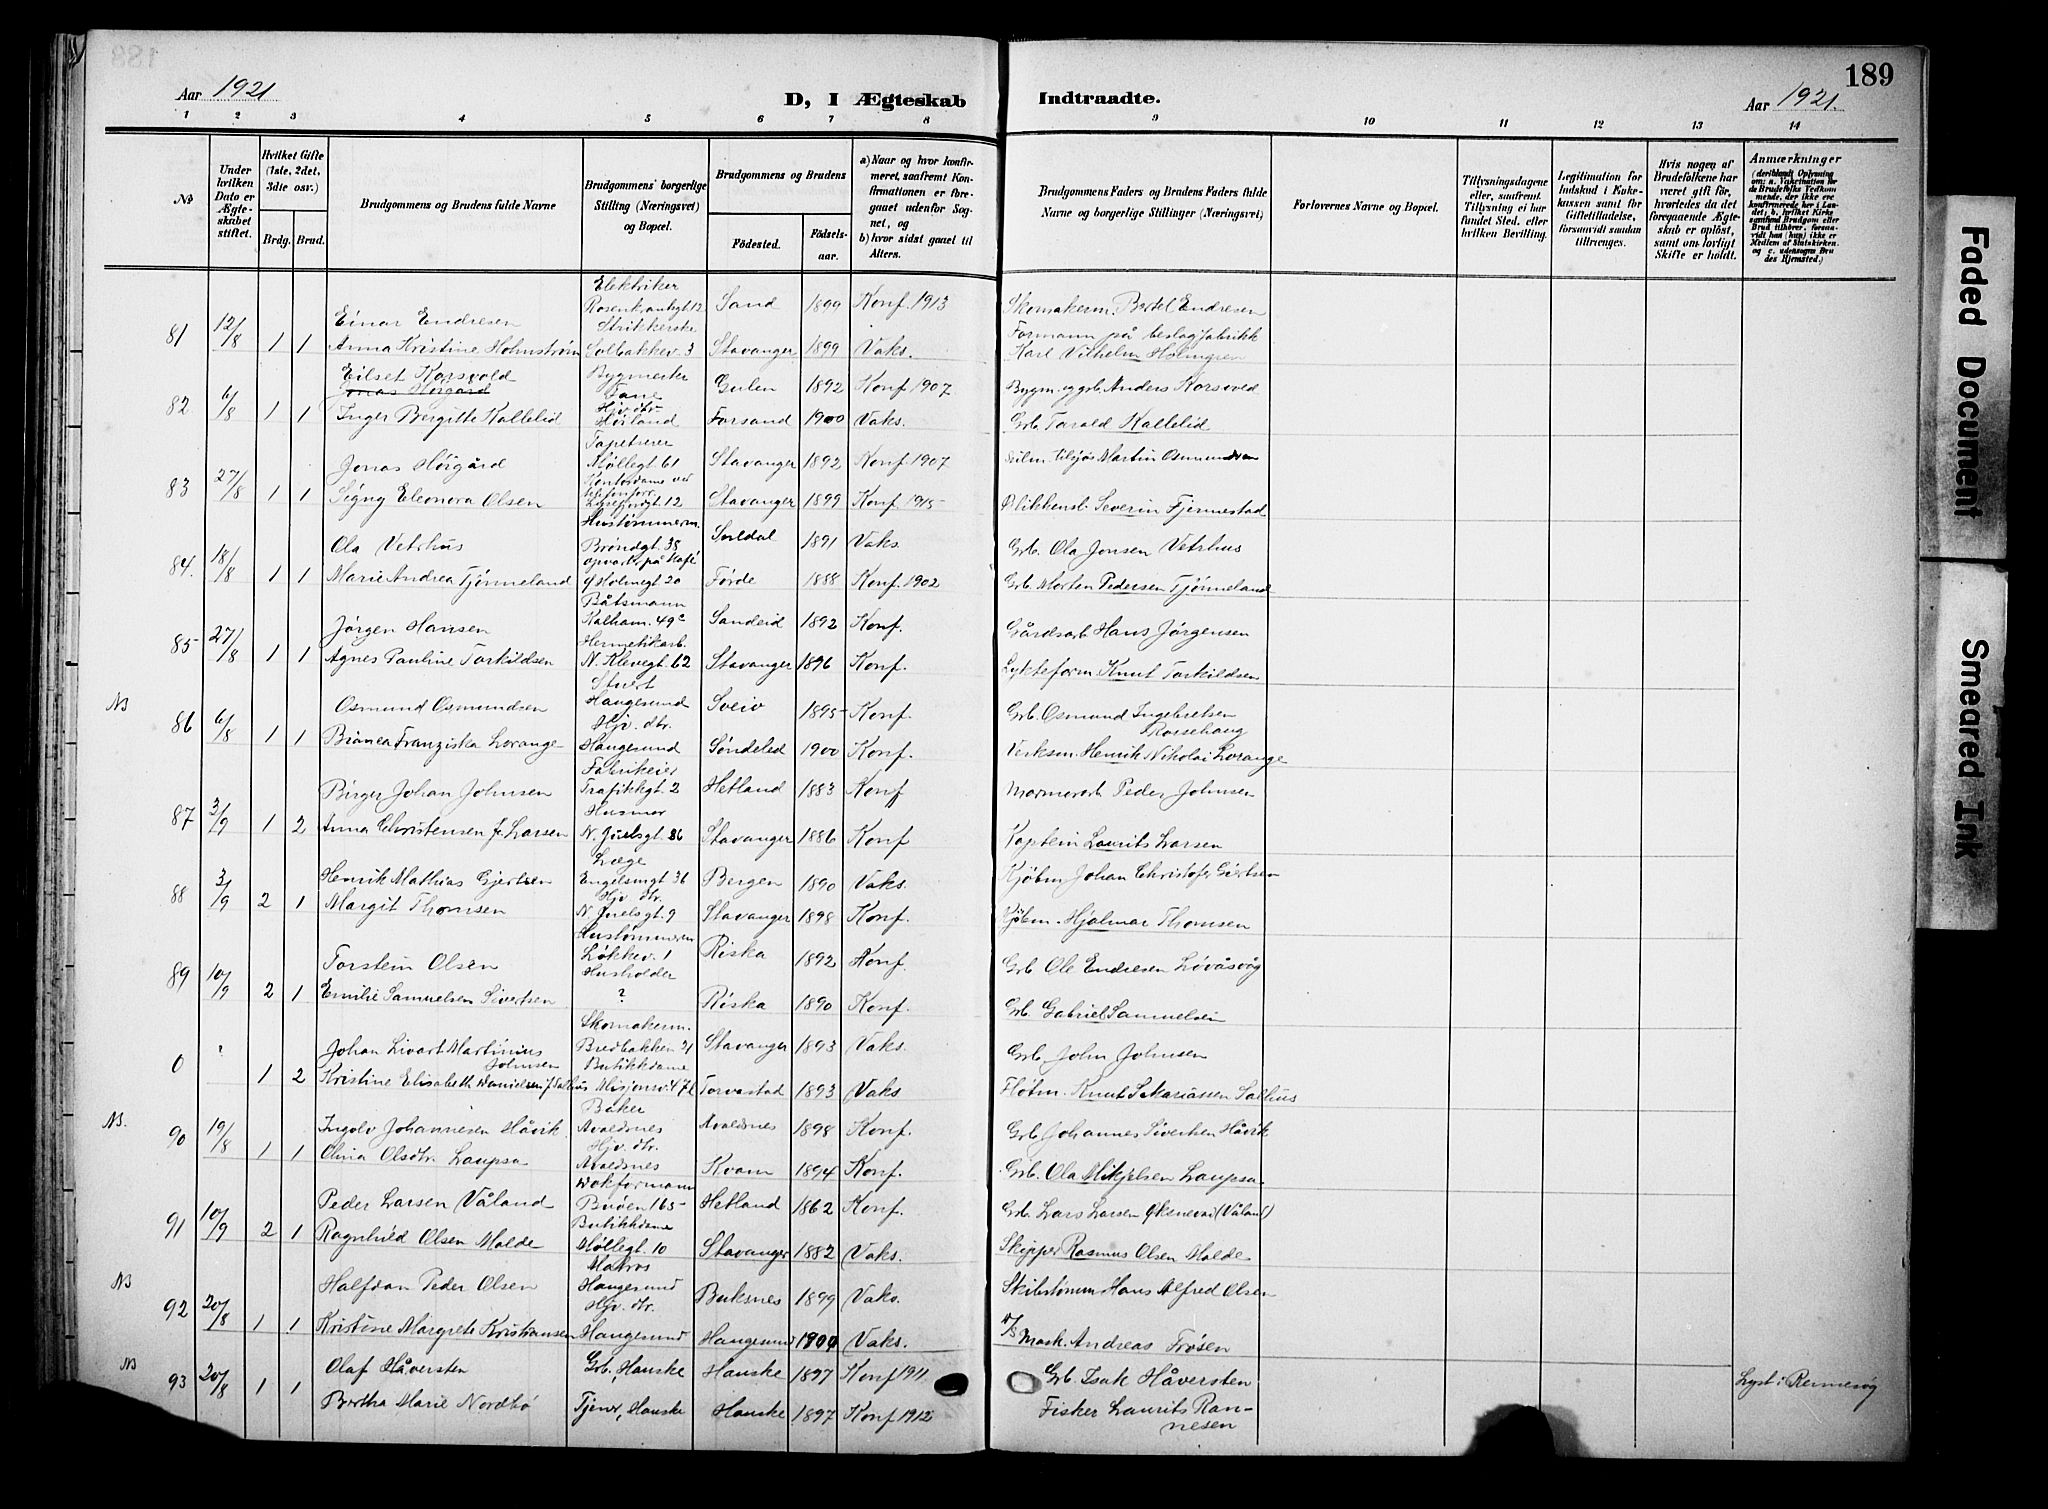 189
Aar 1921
D, I Ægteskab Indtraadte.
Aar 1921.
1 2 3 4 5 6 7 8 9 10 11 12 13 14
No
Under hvilken Dato er Ægteskabet stiftet.
Hvilket Gifte (1ste, 2det, 3die osv.)
Brdg. Brud.
Brudgommens og Brudens fulde Navne
Brudgommens' borgerlige Stilling (Næringsvei) og Bopæl.
Brudgommens og Brudens
Fødested.
Fødselsaar.
a) Naar og hvor konfirmeret, saafremt Konfirmationen er foregaaet udenfor Sognet, og
b) hvor sidst gaaet til Alters.
Brudgommens Faders og Brudens Faders fulde Navne og borgerlige Stillinger (Næringsvei)
Forlovernes Navne og Bopæl.
Tillysningsdagene eller, saafremt Tillysning ei har fundet Sted, efter hvilken Bevilling.
Legitimation for Indskud i Enkekassen samt for Giftetilladelse, forsaavidt saadan tiltrænges.
Hvis nogen af Brudefolkene har været gift før, hvorledes da det foregaaende Ægteskab er opløst, samt om lovligt Skifte er holdt.
Anmærkninger
(deriblandt Oplysning om: a. Vakcination for de Brudefolks Vedkommende, der ikke ere konfirmerede her i Landet; b. hvilket Kirkesamfund Brudgom eller Brud tilhører, forsaavidt han (hun) ikke er Medlem af Statskirken, og c. udensogns Brudes Hjemsted.)
81 12/8 1 1 Einar Endresen Elektriker Rosenkrantzgt 12 Sand 1899 Konf. 1913 Skomakerm. Bertel Endresen
Anna Kristine Holmstrøm Strikkerske Solbakkev. 3 Stavanger 1899 Vaks. Formann på beslagfabrikk Karl Vilhelm Holmgren
82 6/8 1 1 Eilset Korsvold Bygmester Fane Gulen 1892 Konf. 1907 Bygm. og grb. Anders Korsvold
Jonas Hørgård
Inger Bergitte Kallelid Hjv. dtr. Høiland Forsand 1900 Vaks. Grb. Tarald Kallelid
83 27/8 1 1 Jonas Hørgård Tapetserer Møllegt. 61 Stavanger 1892 Konf. 1907 Martin Osmundsen
Signy Eleonora Olsen Kontordame ved telefonforr. Lysefjordgt. 12 Stavanger 1899 Konf. 1915 Blikkensl. Severin Fjermestad
84. 18/8 1 1 Ola Vetrhus Hustømmerm. Brøndgt. 38 Suldal 1891 Vaks. Grb. Ola Jonsen Vetrhus
Marie Andrea Tjønneland opvart. på Kafé Holmegt 20 Førde 1888 Konf. 1902 Grb. Morten Pedersen Tjønneland
85 27/8 1 1 Jørgen Hansen Båtsmann Kalham. 49 Sandeid 1892 Konf. Gårdsarb. Hans Jørgensen
Agnes Pauline Torkildsen Hermetikarb. N. Klevegt 62 Stavanger 1896 Konf. Lykteform. Knut Torkildsen
NB 86 6/8 1 1 Osmund Osmundsen Stuert Haugesund Sveio 1895 Konf. Grb. Osmund Ingebretsen Rossehaug
Bianca Franziska Lorange Hjv. dtr. Haugesund Søndeled 1900 Konf. Verksm. Henrik Nikolai Lorange
87 3/9 1 2 Birger Johan Johnsen Fabrikeier Trafikkgt. 2 Hetland 1883 Konf Marmorarb Peder Johnsen
Anna Christensen f. Larsen Husmor N. Juelsgt. 86 Stavanger 1886 Konf Kaptein Laurits Larsen
88 3/9 2 1 Henrik Mathias Gjertsen Læge Engelsmgt 36 Bergen 1890 Vaks. Kjøbm. Johan Christofer Giertsen
Margit Thomsen Hjv. dtr. N. Juelsgt. 9 Stavanger 1898 Konf. Kjøbm. Hjalmar Thomsen
89 10/9 2 1 Torstein Olsen Hustømmerm Løkkev. 1 Riska 1892 Konf. Grb. Ole Endresen Lovåsvåg
Emilie Samuelsen Sivertsen Husholder ? Riska 1890 Konf. Grb. Gabriel Samuelsen
0 ? 1 2 Johan Sivart Martinius Johnsen Skomakerm. Bredbakken 21 Stavanger 1893 Vaks. Grb. John Johnsen
Kristine Elisabeth Danielsen f. Salhus Butikkdame Misjonsv. 47 Torvastad 1893 Vaks Fløtm. Knut S. Mariassen Salhus
NB. 90 19/8 1 1 Ingolv Johannesen Håvik Baker Avaldsnes Avaldsnes 1898 Konf. Grb. Johannes Sivertsen Håvik
Olivia Olsdtr. Laupsa Hjv. dtr. Avaldsnes Kvam 1894 Konf. Grb. Ola Mikjelsen Laupsa
91 10/9 2 1 Peder Larsen Våland Dokformann Buøen 165 Hetland 1862 Konf. Grb. Lars Larsen Øksnevai (Våland)
Ragnhild Olsen Malde Butikkdame Møllegt. 10 Stavanger 1882 Vaks. Skipper Rasmus Olsen Malde
NB 92 20/8 1 1 Halfdan Peder Olsen Matros Haugesund Buksnes 1899 Vaks. Skibstømm Hans Alfred Olsen
Kristine Margrete Kristiansen Hjv. dtr. Haugesund Haugesund 1904 Vaks. Mask. Andreas Frøsen
NB 93 20/8 1 1 Olaf Håversten Grb. Hauske Hauske 1897 Konf 1911 Grb. Isak Håversten Lyst i Rennesøy
Bertha Marie Nordbø Tjener, Hauske Hauske 1897 Konf 1912 Fisker Laurits Rannesen
Faded Document
Smeared Ink